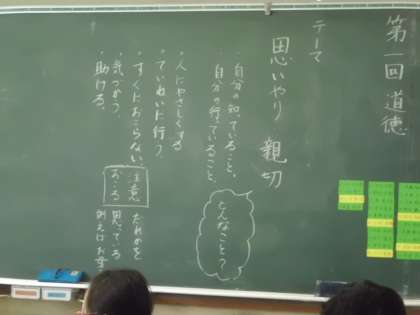 第一回 道徳
テーマ
思いやり 親切
・自分の知っていること。
・自分の行っていること。
どんなこと？
・人にやさしくする
・ていねいに行う。
・すぐにおこらない。
・気づかう。
・助ける。
注意
おこる
だれかを
思っている